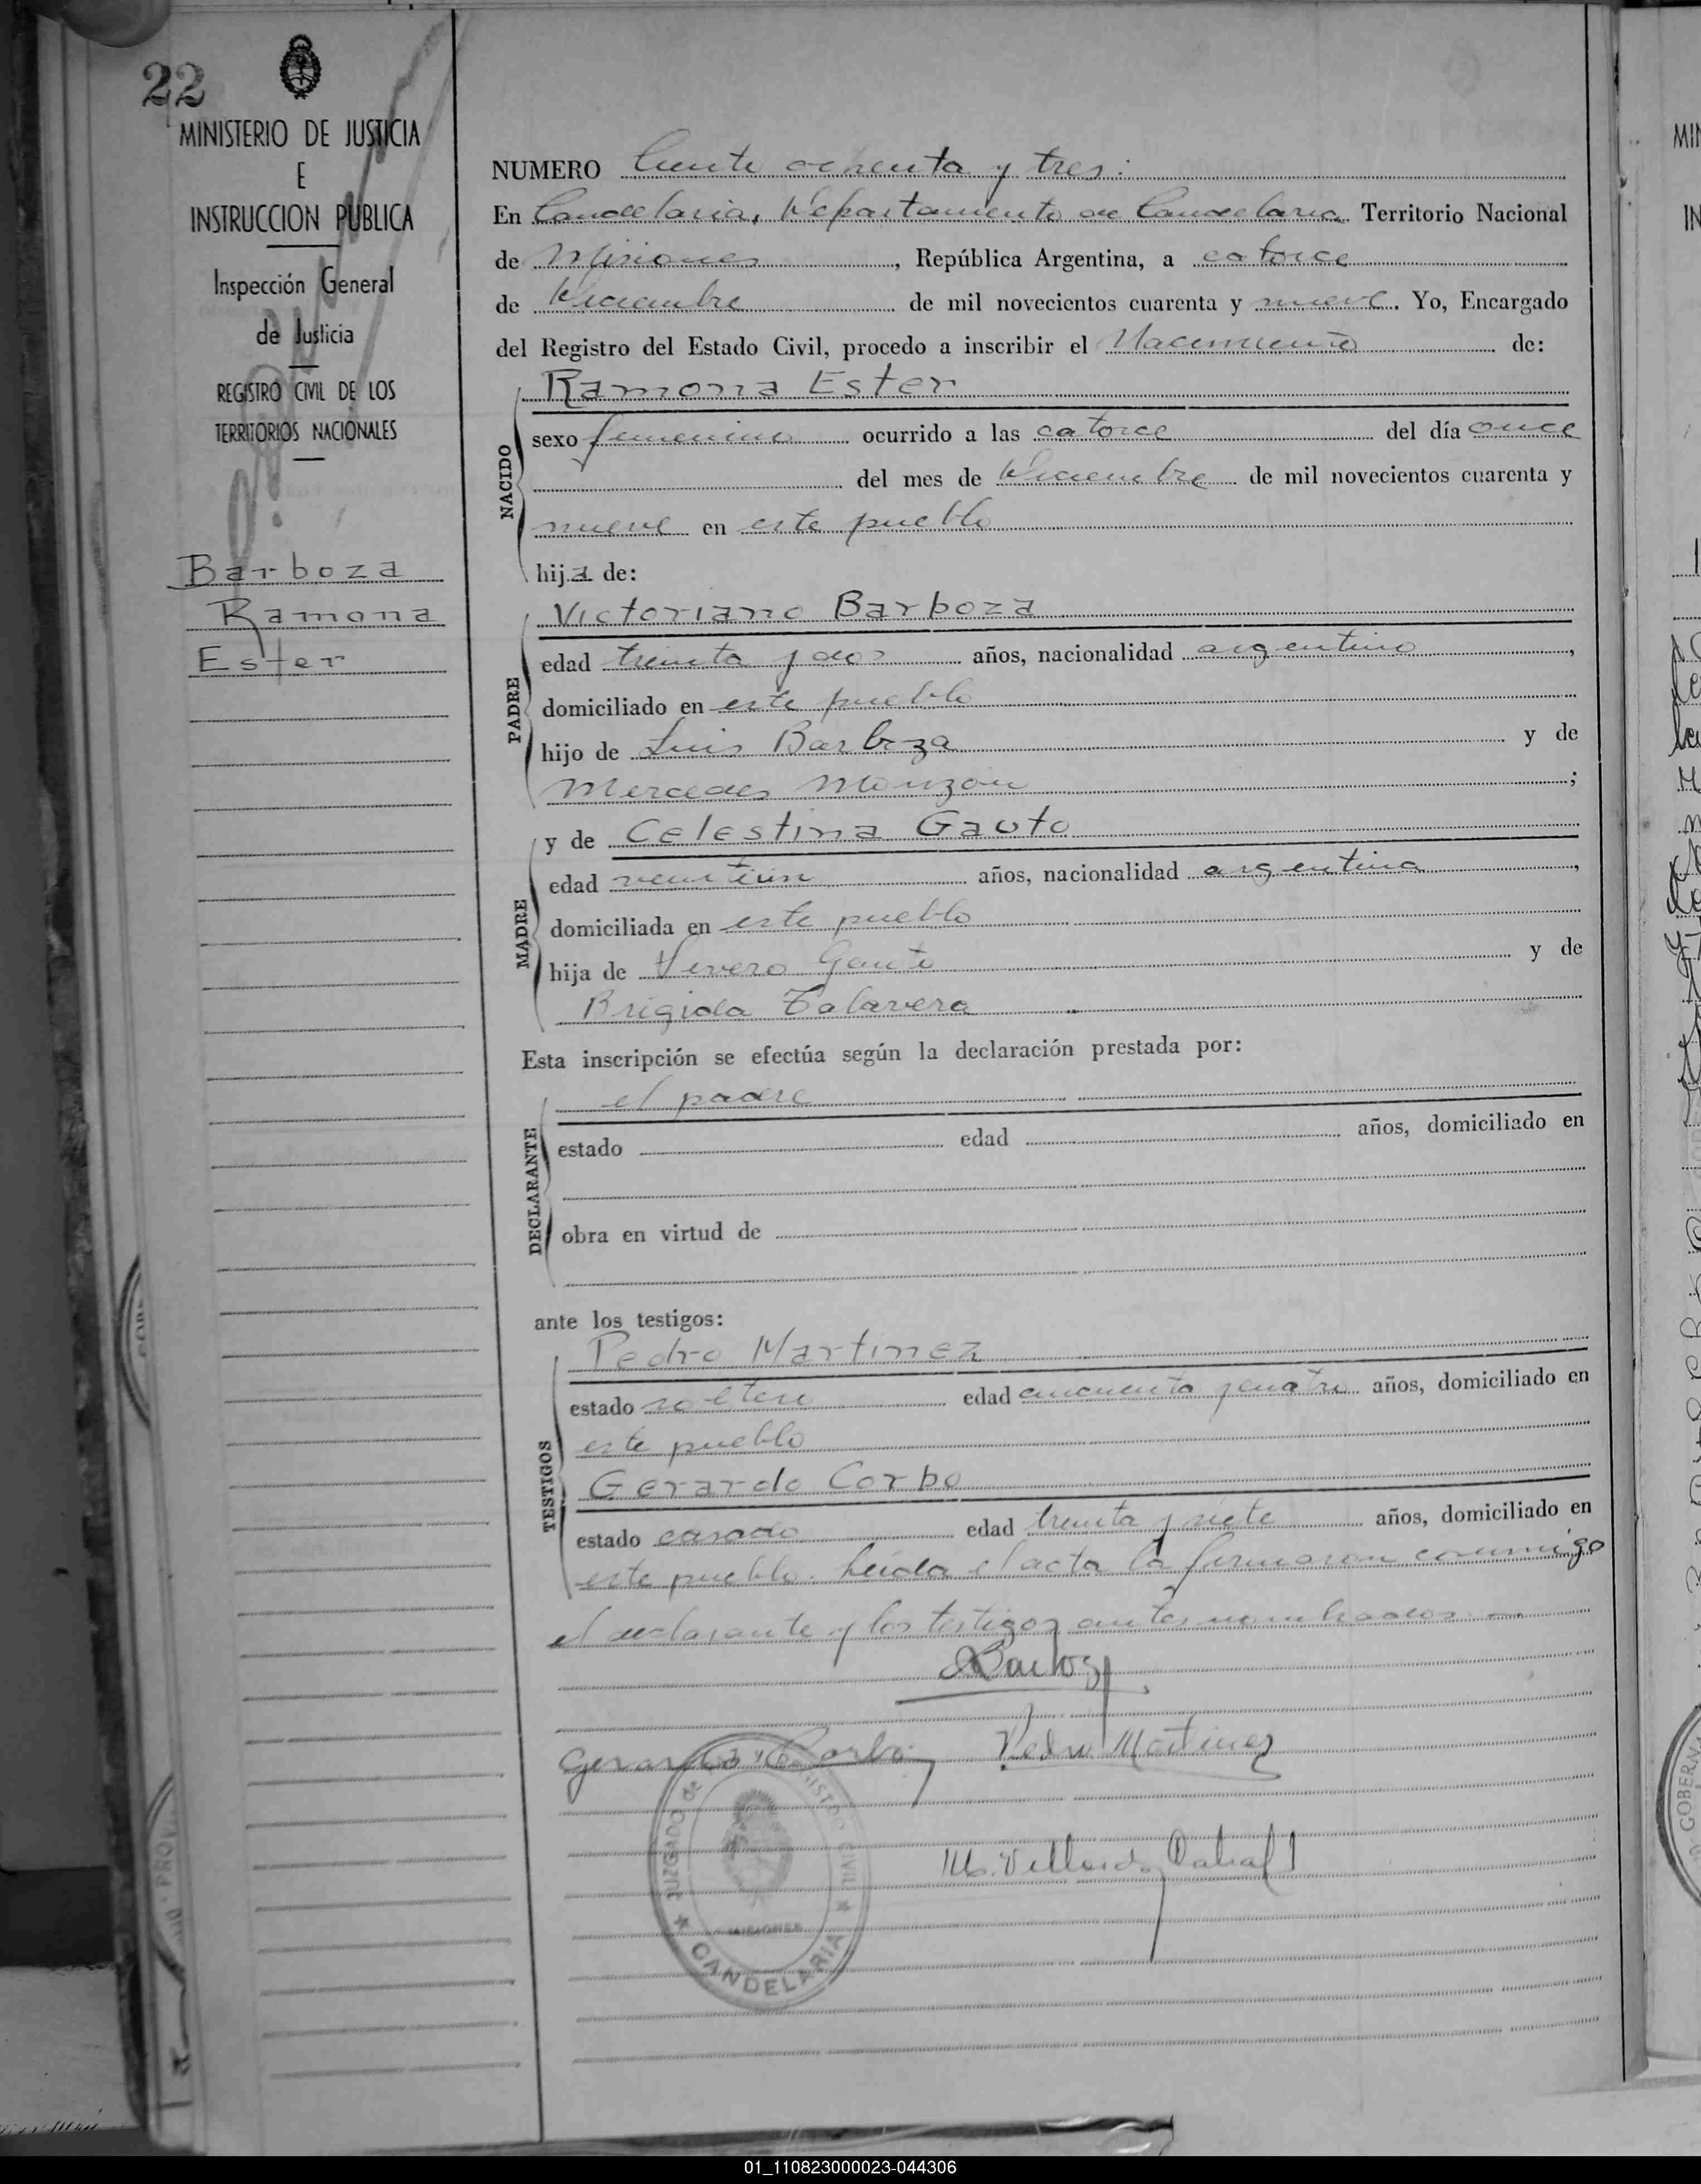 22
MINISTERIO DE JUSTICIA
E
INSTRUCCION PUBLICA
Inspección General
de Justicia
REGISTRO CIVIL DE LOS
TERRITORIOS NACIONALES
Barboza
Ramona
Ester
NUMERO Ciento ochenta y tres:
En Candelaria, Departamento de Candelaria Territorio Nacional
de Misiones, República Argentina, a catorce
de Diciembre de mil novecientos cuarenta y nueve. Yo, Encargado
del Registro del Estado Civil, procedo a inscribir el Nacimiento de:
NACIDO
Ramona Ester
sexo femenino ocurrido a las catorce del día once
del mes de Diciembre de mil novecientos cuarenta y
nueve en este pueblo
hija de:
PADRE
Victoriano Barboza
edad treinta y dos años, nacionalidad argentino,
domiciliado en este pueblo
hijo de Luis Barboza y de
Mercedes Monzon;
MADRE
y de Celestina Gauto
edad veintiun años, nacionalidad argentina,
domiciliada en este pueblo
hija de Gauto y de
Brigida Talavera
Esta inscripción se efectúa según la declaración prestada por:
DECLARANTE
el padre
estado edad años, domiciliado en
obra en virtud de
ante los testigos:
TESTIGOS
Pedro Martinez
estado soltero edad cincuenta y cuatro años, domiciliado en
este pueblo
Gerardo Corbo
estado casado edad treinta y siete años, domiciliado en
este pueblo. Leida el acta la firmaron conmigo
el declarante y los testigos antes nombrados.
Gerardo Corbo Pedro Martinez
JUZGADO de PAZ Y REGISTRO CIVIL
MISIONES
CANDELARIA
01_110823000023-044306